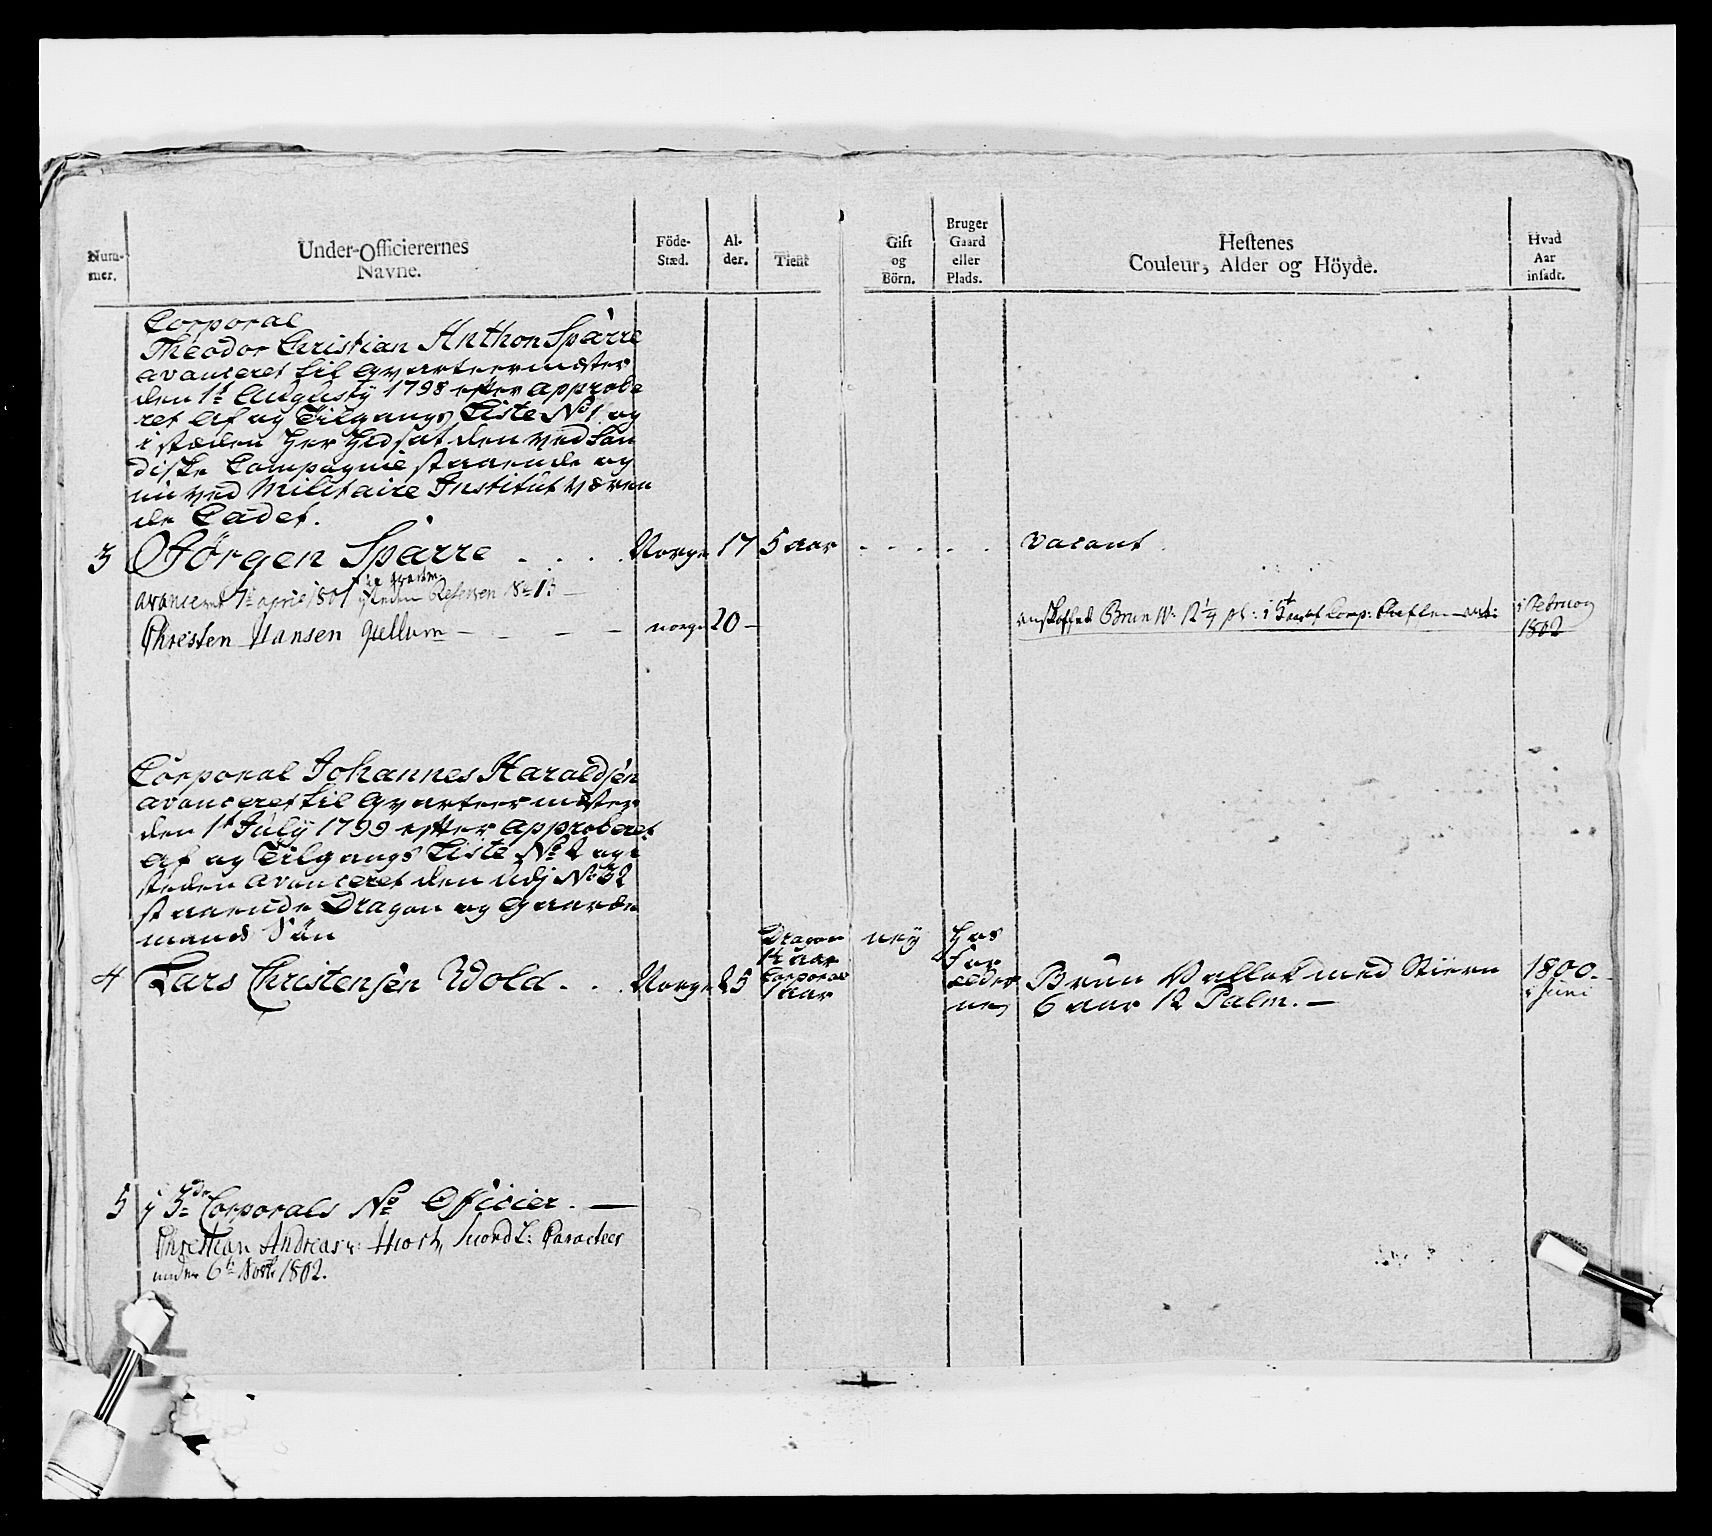 Num-
mer.
Under-Officierernes
Navne.
Föde-
Stæd.
Al-
der.
Tient
Gift
og
Börn.
Bruger
Gaard
eller
Plads.
Hestenes
Couleur, Alder og Höyde.
Hvad
Aar
insadt.
Corporal
Theodor Christian Anthon Sparre
avanceret til Qvarteermester
den 1t Augusty 1798 efter approbe
ret Af og Tilgangs Liste No 1 og
i stæden her hidsat den ved
diske Compagnie staaende og
nu ved Militaire Institut væren
de Cadet.
3 Jörgen Sparre . . . . Norge 17 5 aar . . . . . vacant.
avanceret 1t april 1801
Christen Hansen norge 20 — Brun W: 12 1/4 i Februar
1802
Corporal Johannes Haraldsen
avanceret til Qvarteermester
den 1t July 1799 efter approberet
Af og Tilgangs Liste No 2 og i
steden avanceret den udj No 32
staaende Dragon og Gaarde
mands Sön
4 Lars Christensen Wold . . . Norge 25 Dragon
1½ aar
Corporal
1 aar
ney
Hos
For
ælder
ne
Brun Vallak med Stiern
6 aar 12 Palm. —
1800.
i Juni
5 i 3de Corporals No Officier. —
Christian Andreas
under 6te 1802.